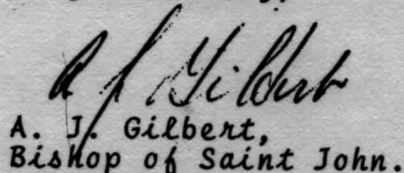 A J Gilbert
A. J. Gilbert,
Bishop of Saint John.